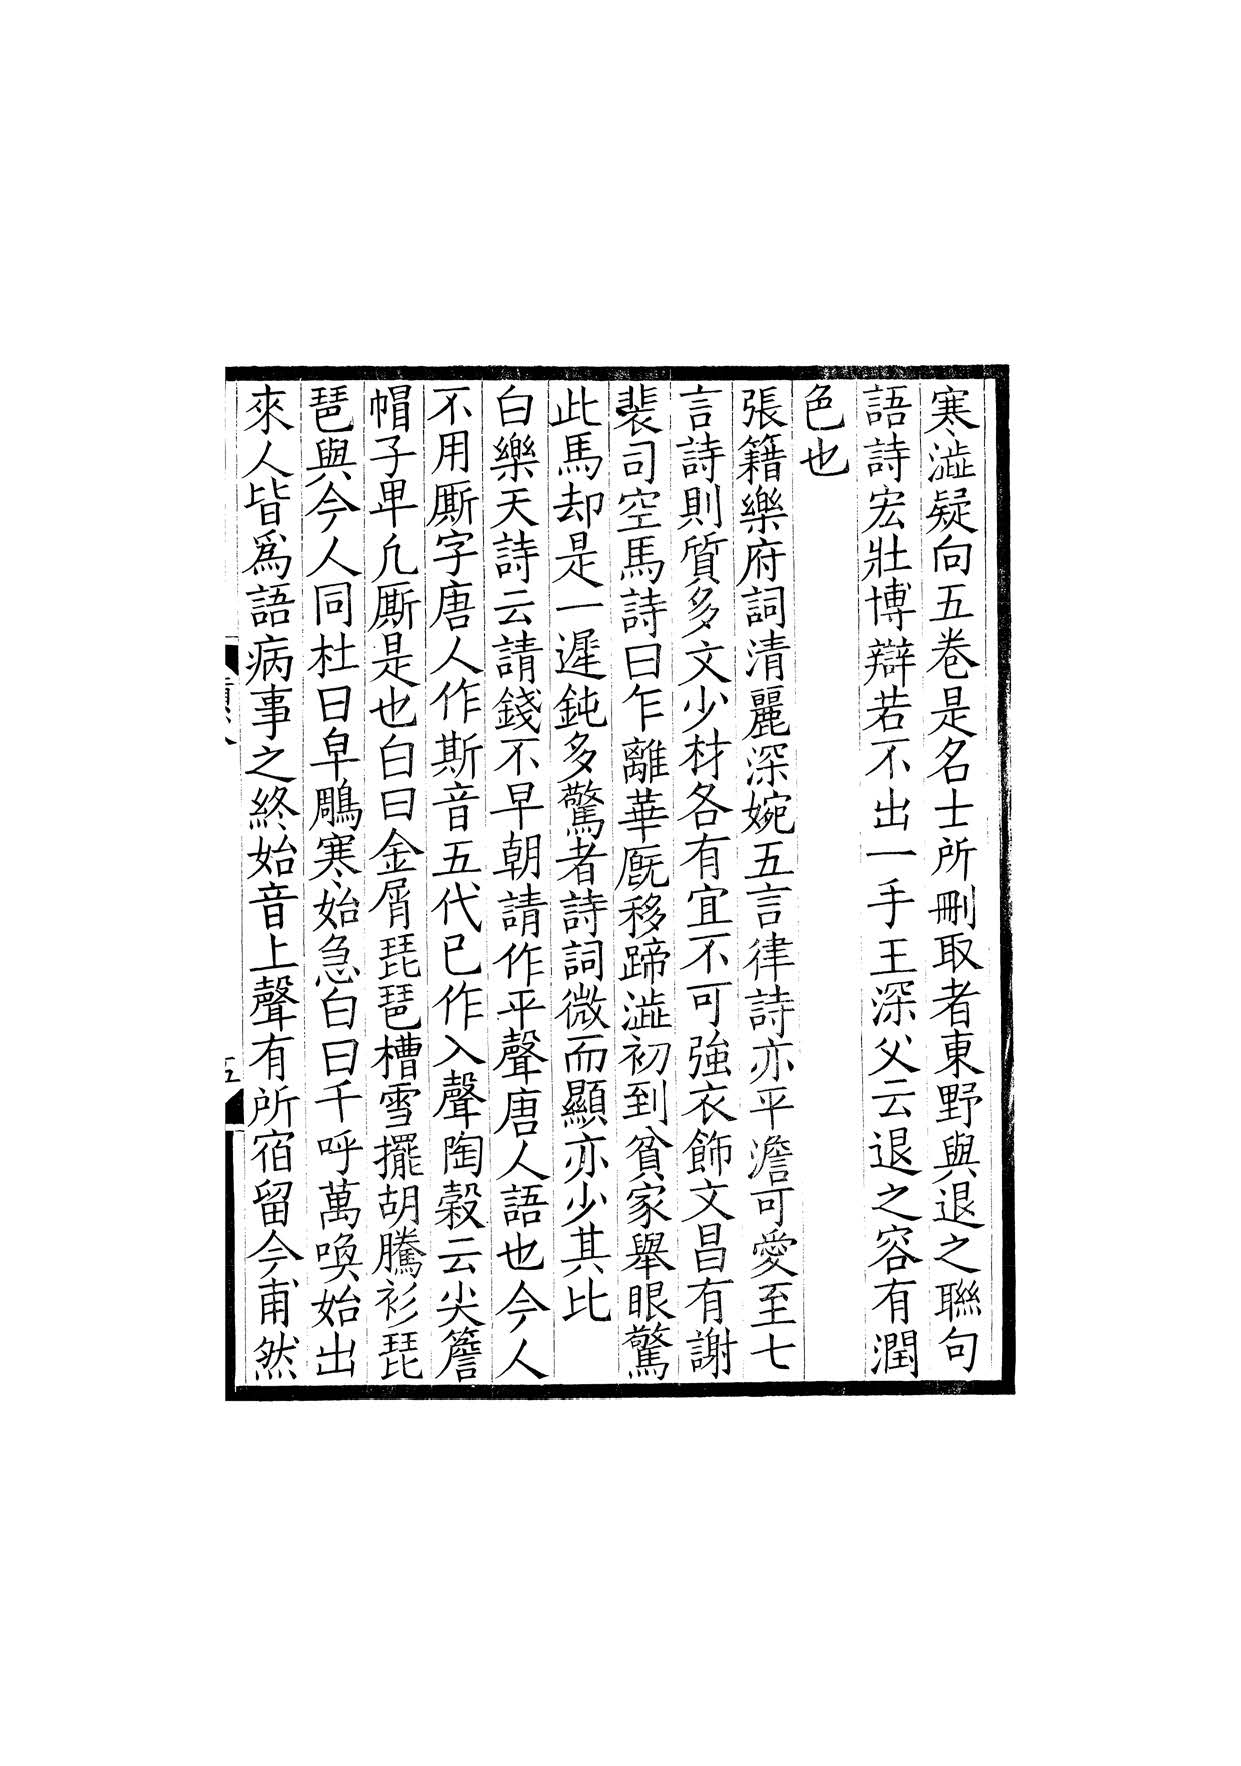 寒澁疑向五卷是名士所刪取者東野與退之聯句
語詩宏壯博辯若不出一手王深父云退之容有潤
色也
張籍樂府詞清麗深婉五言律詩亦平澹可愛至七
言詩則質多文少材各有宜不可強衣飾文昌有謝
裴司空馬詩曰乍離華廐移蹄澁初到貧家舉眼驚
此馬却是一遲鈍多驚者詩詞微而顯亦少其比
白樂天詩云請錢不早朝請作平聲唐人語也今人
不用厮字唐人作斯音五代已作入聲陶穀云尖簷
帽子卑凢厮是也白曰金屑琵琶槽雪擺胡騰衫琵
琶與今人同杜曰皁雕寒始急白曰千呼萬喚始出
來人皆爲語病事之終始音上聲有所宿留今甫然
五